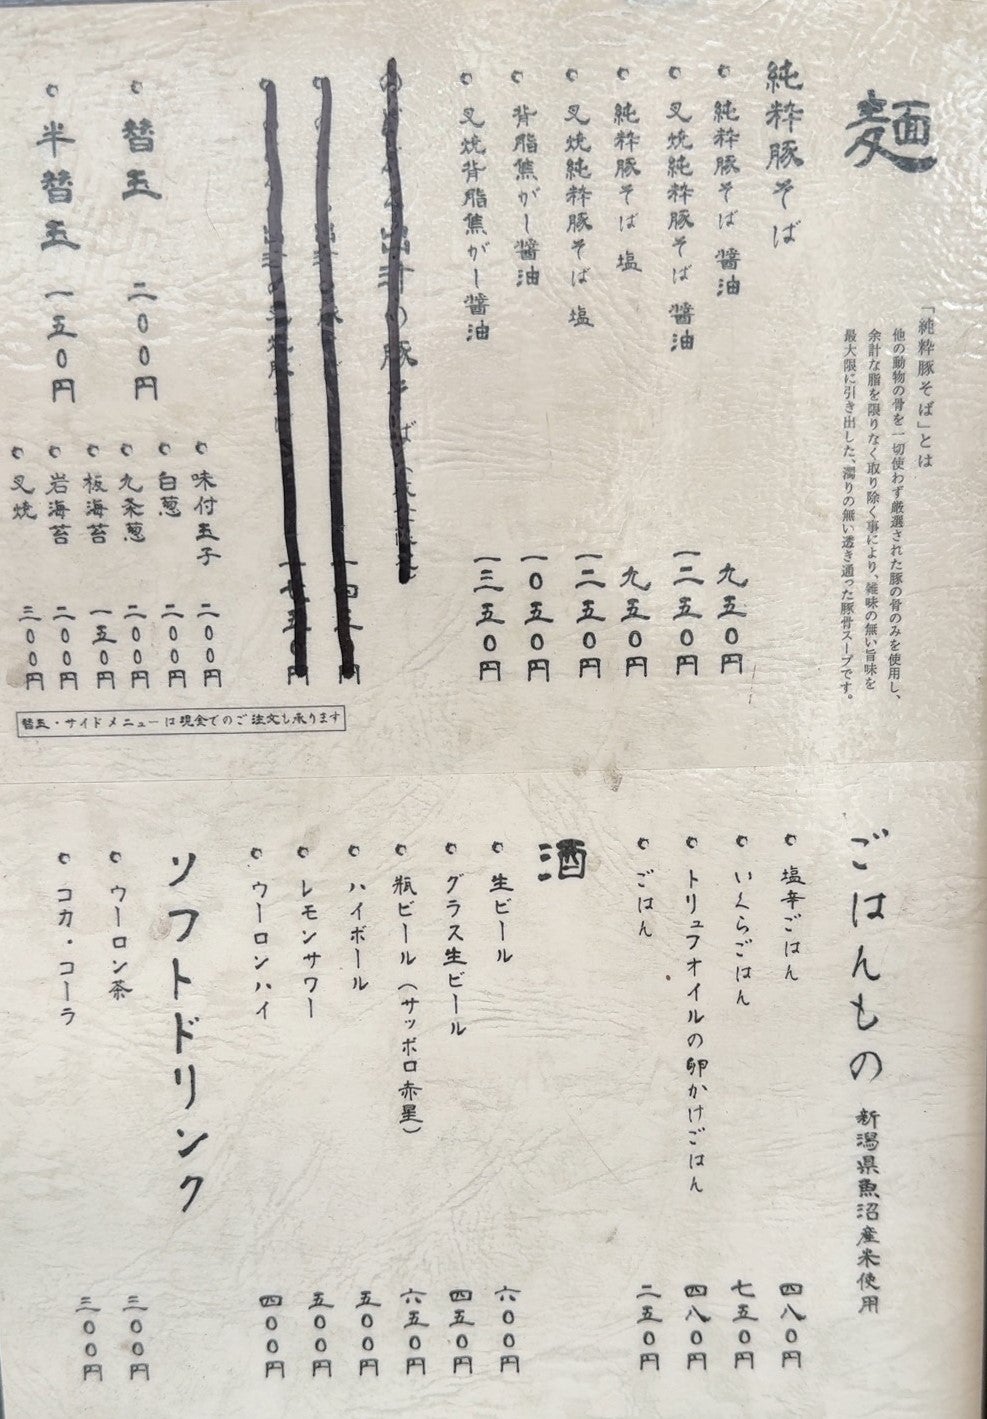 麺
「純粋豚そば」とは
他の動物の骨を一切使わず厳選された豚の骨のみを使用し、
余計な脂を限りなく取り除く事により、雑味の無い旨味を
最大限に引き出した、濁りの無い透き通った豚骨スープです。
純粋豚そば
純粋豚そば 醤油 九五〇円
叉焼純粋豚そば 醤油 一二五〇円
純粋豚そば 塩 九五〇円
叉焼純粋豚そば 塩 一二五〇円
背脂焦がし醤油 一〇五〇円
叉焼背脂焦がし醤油 一三五〇円
替玉 二〇〇円
半替玉 一五〇円
味付玉子 二〇〇円
白葱 二〇〇円
九条葱 二〇〇円
板海苔 一五〇円
岩海苔 二〇〇円
叉焼 三〇〇円
替玉・サイドメニューは現金でのご注文も承ります
ごはんもの 新潟県魚沼産米使用
塩辛ごはん 四八〇円
いくらごはん 七五〇円
トリュフオイルの卵かけごはん 四八〇円
ごはん 二五〇円
酒
生ビール 六〇〇円
グラス生ビール 四五〇円
瓶ビール(サッポロ赤星) 六五〇円
ハイボール 五〇〇円
レモンサワー 五〇〇円
ウーロンハイ 四〇〇円
ソフトドリンク
ウーロン茶 三〇〇円
コカ・コーラ 三〇〇円